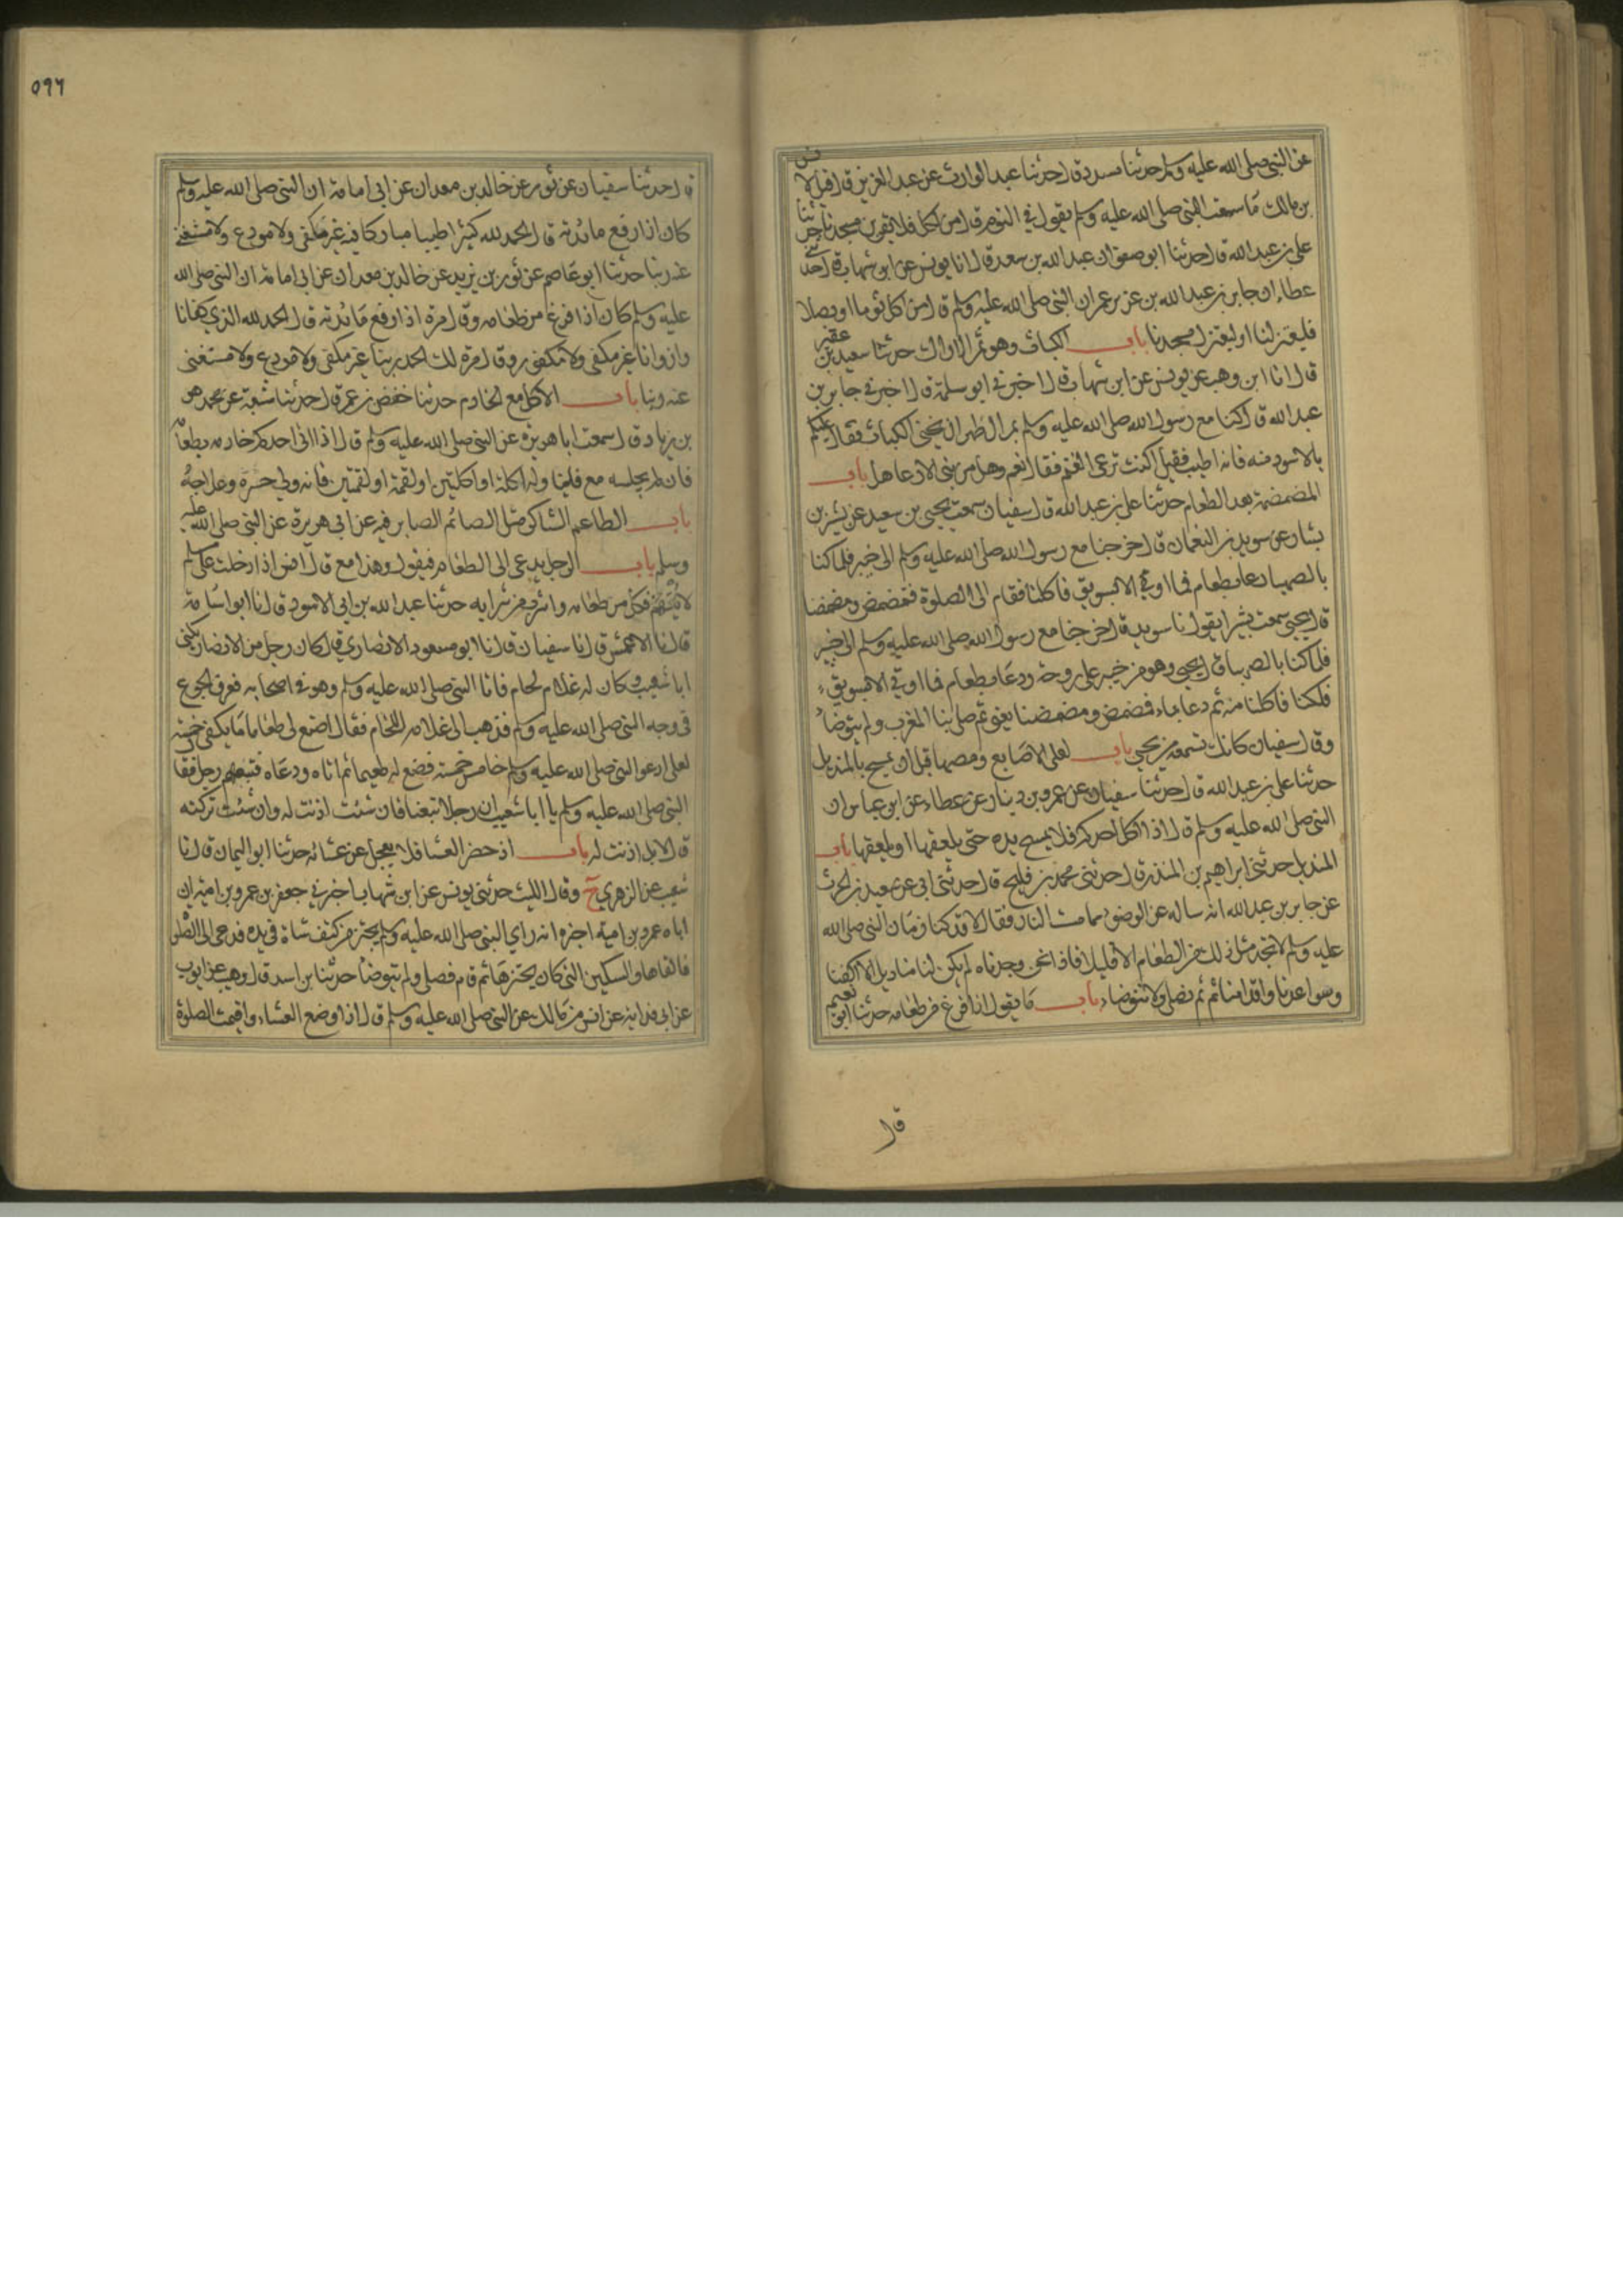 عن النبي صلى الله عليه وسلم حدثنا مسدد قال حدثنا عبد الوارث عن عبد العزيز قال قيل لانس
بن مالك ما سمعت النبي صلى الله عليه وسلم يقول في الثوم قال من اكل فلا يقربن مسجدنا حدثنا
علي بن عبد الله قال حدثنا ابو صفوان عبد الله بن سعد قال انا يونس عن ابن شهاب قال حدثني
عطاء ان جابر بن عبد الله بن عن النبي صلى الله عليه وسلم قال من اكل ثوما او بصلا
فليعتزلنا او ليعتزل مسجدنا باب الكباث وهو ثمر الاراك حدثنا سعيد بن عفير
قال انا ابن وهب عن يونس عن ابن شهاب قال اخبرني ابو سلمة قال اخبرني جابر بن
عبد الله قال كنا مع رسول الله صلى الله عليه وسلم بمر الظهران نجني الكباث فقال عليكم
بالاسود منه فانه اطيب فقيل اكنت ترعى الغنم فقال نعم وهل من نبي الا رعاها باب
المضمضة بعد الطعام حدثنا علي بن عبد الله قال سفيان سمعت يحيى بن سعيد عن بشير بن
يسار عن سويد بن النعمان قال خرجنا مع رسول الله صلى الله عليه وسلم الى خيبر فلما كنا
بالصهباء دعا بطعام فما اوتي الا بسويق فاكلنا فقام الى الصلوة فتمضمض ومضمضنا
قال يحيى سمعت بشيرا يقول نا سويد قال خرجنا مع رسول الله صلى الله عليه وسلم الى خيبر
فلما كنا بالصهباء قال يحيى وهو من خيبر على روحة ودعا بطعام فما اوتي الا بسويق
فلكنا فاكلنا منه ثم دعا بماء فمضمض ومضمضنا يعني ثم صلى بنا المغرب ولم يتوضأ
وقال سفيان كانك تسمعه من يحيى باب لعق الاصابع ومصها قبل ان يمسح بالمنديل
حدثنا علي بن عبد الله قال حدثنا سفيان عن عمرو بن دينار عن عطاء عن ابن عباس ان
النبي صلى الله عليه وسلم قال اذا اكل احدكم فلا يمسح يده حتى يلعقها او يلعقها باب
المنديل حدثني ابراهيم بن المنذر قال حدثني محمد بن فليح قال حدثني ابي عن سعيد بن الحرث
عن جابر بن عبد الله انه ساله عن الوضوء مما مست النار فقال لا قد كنا زمان النبي صلى الله
عليه وسلم لا نجد مثل ذلك من الطعام الا قليلا فاذا نحن وجدناه لم يكن لنا مناديل الا اكفنا
وسواعدنا واقدامنا ثم نصلي ولا نتوضأ باب ما يقول اذا فرغ من طعامه حدثنا ابو نعيم
قال
٥٩٦
قال حدثنا سفيان عن ثور عن خالد بن معدان عن ابي امامة ان النبي صلى الله عليه وسلم
كان اذا رفع مائدته قال الحمد لله كثيرا طيبا مباركا فيه غير مكفي ولا مودع ولا مستغنى
عنه ربنا حدثنا ابو عاصم عن ثور بن يزيد عن خالد بن معدان عن ابي امامة ان النبي صلى الله
عليه وسلم كان اذا فرغ من طعامه وقال مرة اذا رفع مائدته قال الحمد لله الذي كفانا
واروانا غير مكفي ولا مكفور وقال مرة لك الحمد ربنا غير مكفي ولا مودع ولا مستغنى
عنه ربنا باب الاكل مع الخادم حدثنا حفص بن عمر قال حدثنا شعبة عن محمد هو
بن زياد قال سمعت ابا هريرة عن النبي صلى الله عليه وسلم قال اذا اتى احدكم خادمه بطعامه
فان لم يجلسه مع فليناوله اكلة او اكلتين او لقمة او لقمتين فانه ولي حره وعلاجه
باب الطاعم الشاكر مثل الصائم الصابر فيه عن ابي هريرة عن النبي صلى الله عليه
وسلم باب الرجل يدعى الى الطعام فيقول وهذا مع قال انس اذا دخلت على مسلم
لا يتهم فكل من طعامه واشرب من شرابه حدثنا عبد الله بن ابي الاسود قال انا ابو اسامة
قال نا الاعمش قال نا سفيان قال نا ابو مسعود الانصاري قال كان رجل من الانصار يكنى
ابا شعيب وكان له غلام لحام فاتا النبي صلى الله عليه وسلم وهو في اصحابه فعرف الجوع
في وجه النبي صلى الله عليه وسلم فذهب الى غلامه اللحام فقال اصنع لي طعاما ما يكفي خمسة
لعلي ادعو النبي صلى الله عليه وسلم خامس خمسة فصنع له طعيما ثم اتاه ودعاه فتبعهم رجل فقال
النبي صلى الله عليه وسلم يا ابا شعيب ان رجلا تبعنا فان شئت اذنت له وان شئت تركته
قال لا بل اذنت له باب اذ حضر العشا فلا يعجل عن عشائه حدثنا ابو اليمان قال نا
شعيب عن الزهري ح وقال الليث حدثني يونس عن ابن شهاب اخبرني جعفر بن عمرو بن امية ان
اباه عمرو بن امية اخبره انه راي النبي صلى الله عليه وسلم يحتز من كتف شاة في يده فدعي الى الصلوة
فالقاها والسكين التي كان يحتز بها ثم قام فصلى ولم يتوضأ حدثنا بن اسد قال وهيب عن ايوب
عن ابي قلابة عن انس بن مالك عن النبي صلى الله عليه وسلم قال اذا وضع العشاء واقيمت الصلوة